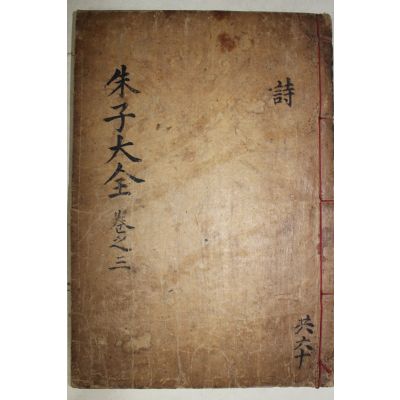 詩
共六十
朱子大全 卷之三